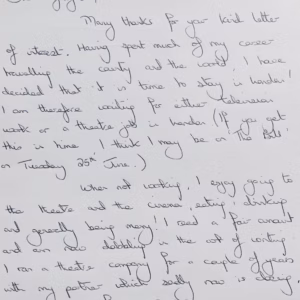 Many thanks for your kind letter
of interest. Having spent much of my career
travelling the country and the world I have
decided that it is time to stay in London!
I am therefore waiting for either television
work or a theatre job in London (If you get
this in time I think I may be on 'The Bill'
on Tuesday 25th June.)
When not working, I enjoy going to
the theatre and the cinema, eating, drinking
and generally being merry! I read a fair amount
and am now dabbling in the art of writing.
I ran a theatre company for a couple of years
with my partner which sadly now is